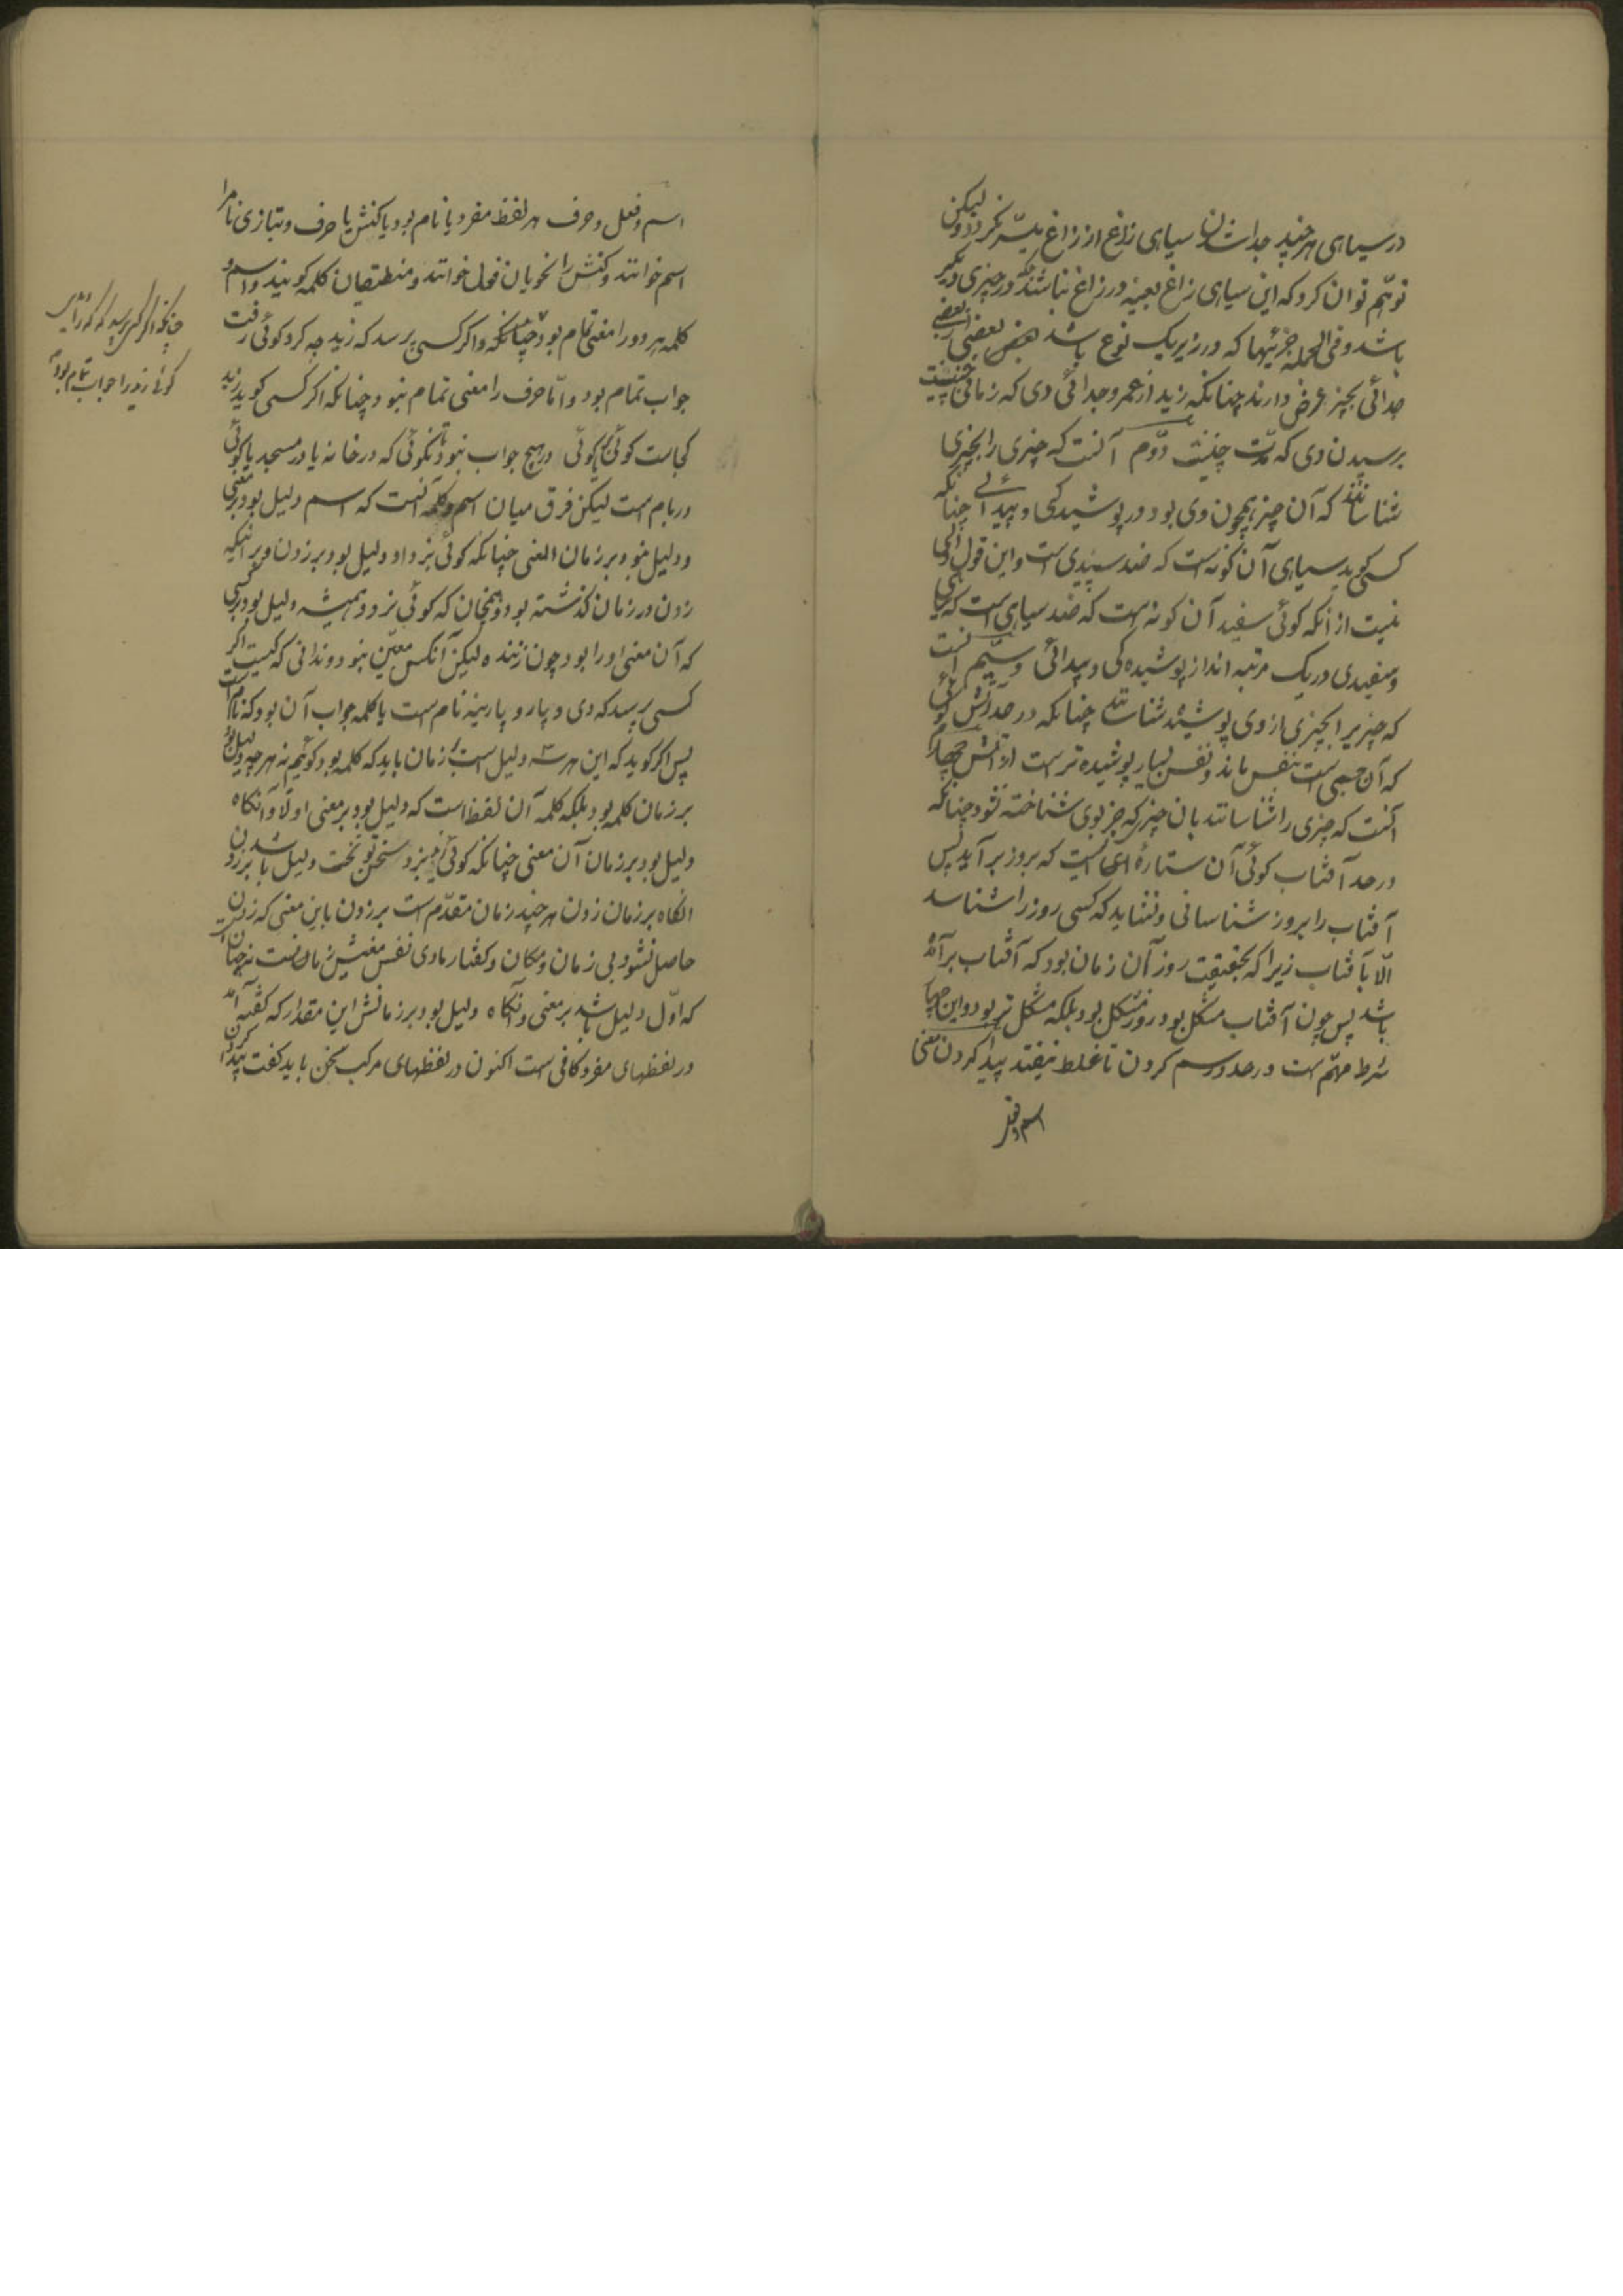 در سیاهی هرچند جدا شدن سیاهی زاغ از زاغ میسّر نکردد ولیکن
توهّم توان کرد که این سیاهی زاغ بعینه در زاغ نباشد که در چیزی دیکر
باشد و فی الجمله جزئیها که در زیر یک نوع باشد بعضی را از بعضی
جدائی بچیز عرض دارند چنانکه زید از عمرو جدائی وی که زمانی
برسیدن وی که مدّت چنین است دوّم آنست که چیزی را بچیزی
شناسانند که آن چیز همچون وی بود در پوشیدکی و پیدائی چنانکه
کسی کوید سیاهی آن کونه است که ضد سپیدی است و این قول اولی
نیست از انکه کوئی سفید آن کونه است که ضد سیاهی است که سیاهی
و سفیدی در یک مرتبه اند از پوشیده کی و پیدائی و سیّم آنست
که چیزیرا بچیزی از وی پوشیده شناسانند چنانکه در حد آتش کوئی
که آن جسمی است بنفس ماند و نفس بسیار پوشیده تر است از آتش چهارم
آنست که چیزی را شناسانند بان چیز که جز بوی شناخته نشود چنانکه
در حد آفتاب کوئی آن ستارهٔ ای است که بروز برآید پس
آفتاب را بروز شناسانی و نشاید که کسی روز را شناسد
الّا بآفتاب زیرا که بحقیقت روز آن زمان بود که آفتاب برآمده
باشد پس چون آفتاب مشکل بود روز مشکل بود بلکه مشکل تر بود و این چهار
شرط مهمّ است در حد و رسم کردن تا غلط نیفتد پیدا کردن معنی
اسم و فعل
اسم و فعل و حرف هر لفظ مفرد یا نام بود یا کنش یا حرف و بتازی نام را
اسم خوانند و کنش را نحویان فعل خوانند و منطقیان کلمه کویند و اسم و
کلمه هر دو را معنی تمام بود چنانکه و اکر کسی پرسد که زید چه کرد کوئی رفت
جواب تمام بود و امّا حرف را معنی تمام نبود چنانکه اکر کسی کوید زید
کجاست کوئی در هیچ جواب نبود تا نکوئی که در خانه یا در مسجد یا کوئی
در بام است لیکن فرق میان اسم و کلمه آنست که اسم دلیل بود بر معنی
و دلیل نبود بر زمان المعنی چنانکه کوئی بزد او دلیل بود بر زدن و بر آنکه
زدن در زمان کذشته بود و همچنان که کوئی بزد و همیشه دلیل بود بر کسی
که آن معنی او را بود چون زننده لیکن آنکس معیّن نبود و ندانی که کیست اکر
کسی پرسد که دی و پار و پارینه نام است یا کلمه جواب آن بود که نام است
پس اکر کوید که این هر سه دلیل است بر زمان باید که کلمه بود کوئیم نه هر چه دلیل بود
بر زمان کلمه بود بلکه کلمه آن لفظ است که دلیل بود بر معنی اولا و آنکاه
دلیل بود بر زمان آن معنی چنانکه کوئی بزد سخن تو نخست دلیل باشد بر زدن
انکاه بر زمان زدن هرچند زمان متقدّم است بر زدن باین معنی که زدن
حاصل نشود بی زمان و مکان و کفتار ما دی نفس معنیش زمان است نه چنان است
که اوّل دلیل باشد بر معنی و آنکاه دلیل بود بر زمانش این مقدار که کفته آمد
در لفظهای مفرد کافی است اکنون در لفظهای مرکب سخن باید کفت پیدا کردن
چنانکه اکر کسی پرسد که کرا دیدی
کوئی زید را جواب تمام بود